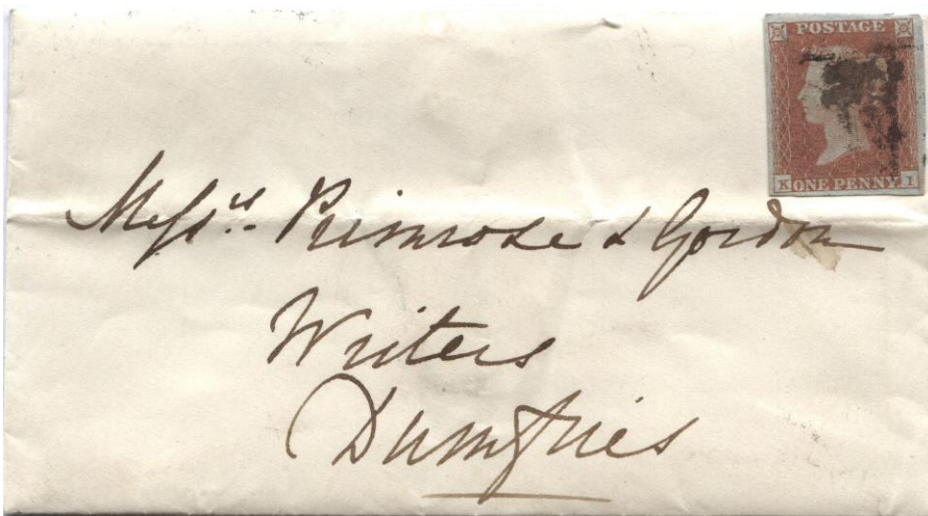 POSTAGE
K ONE PENNY I
Messrs. Primrose & Gordon
Writers
Dumfries